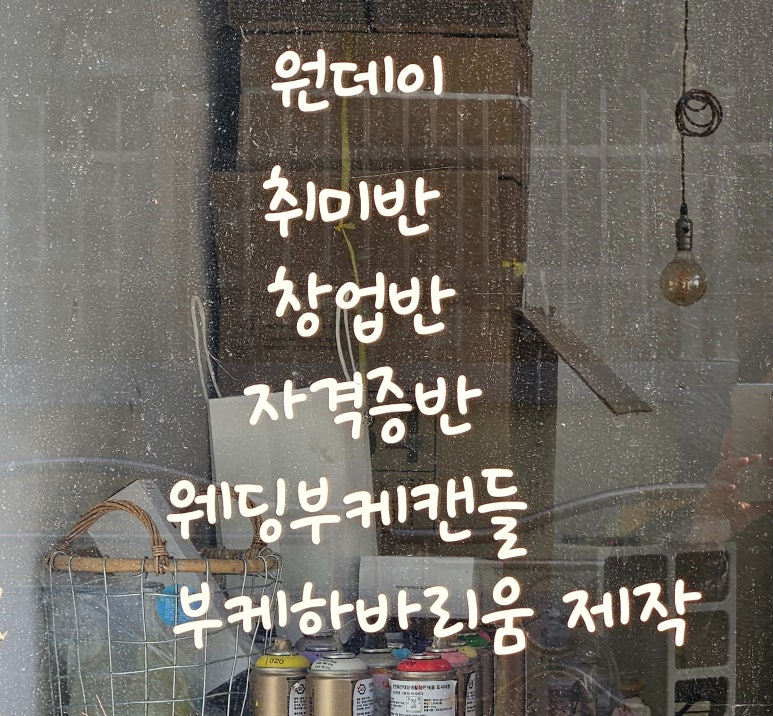 원데이
취미반
창업반
자격증반
웨딩부케캔들
부케하바리움 제작
1020